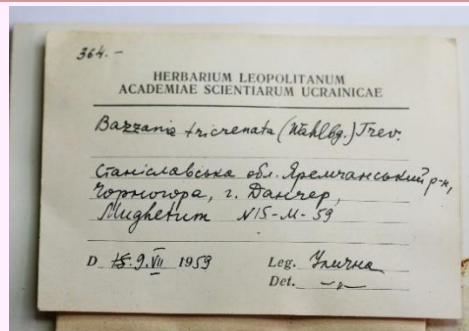 364.-
HERBARIUM LEOPOLITANUM
ACADEMIAE SCIENTIARUM UCRAINICAE
Bazzania tricrenata (Wahlbg.) Trev.
Станіславська обл. Яремчанський р-н,
Чорногора, г. Данчер,
Mughetum N15-M-59
D 9.VII 1959 Leg. Улична
Det. -„-